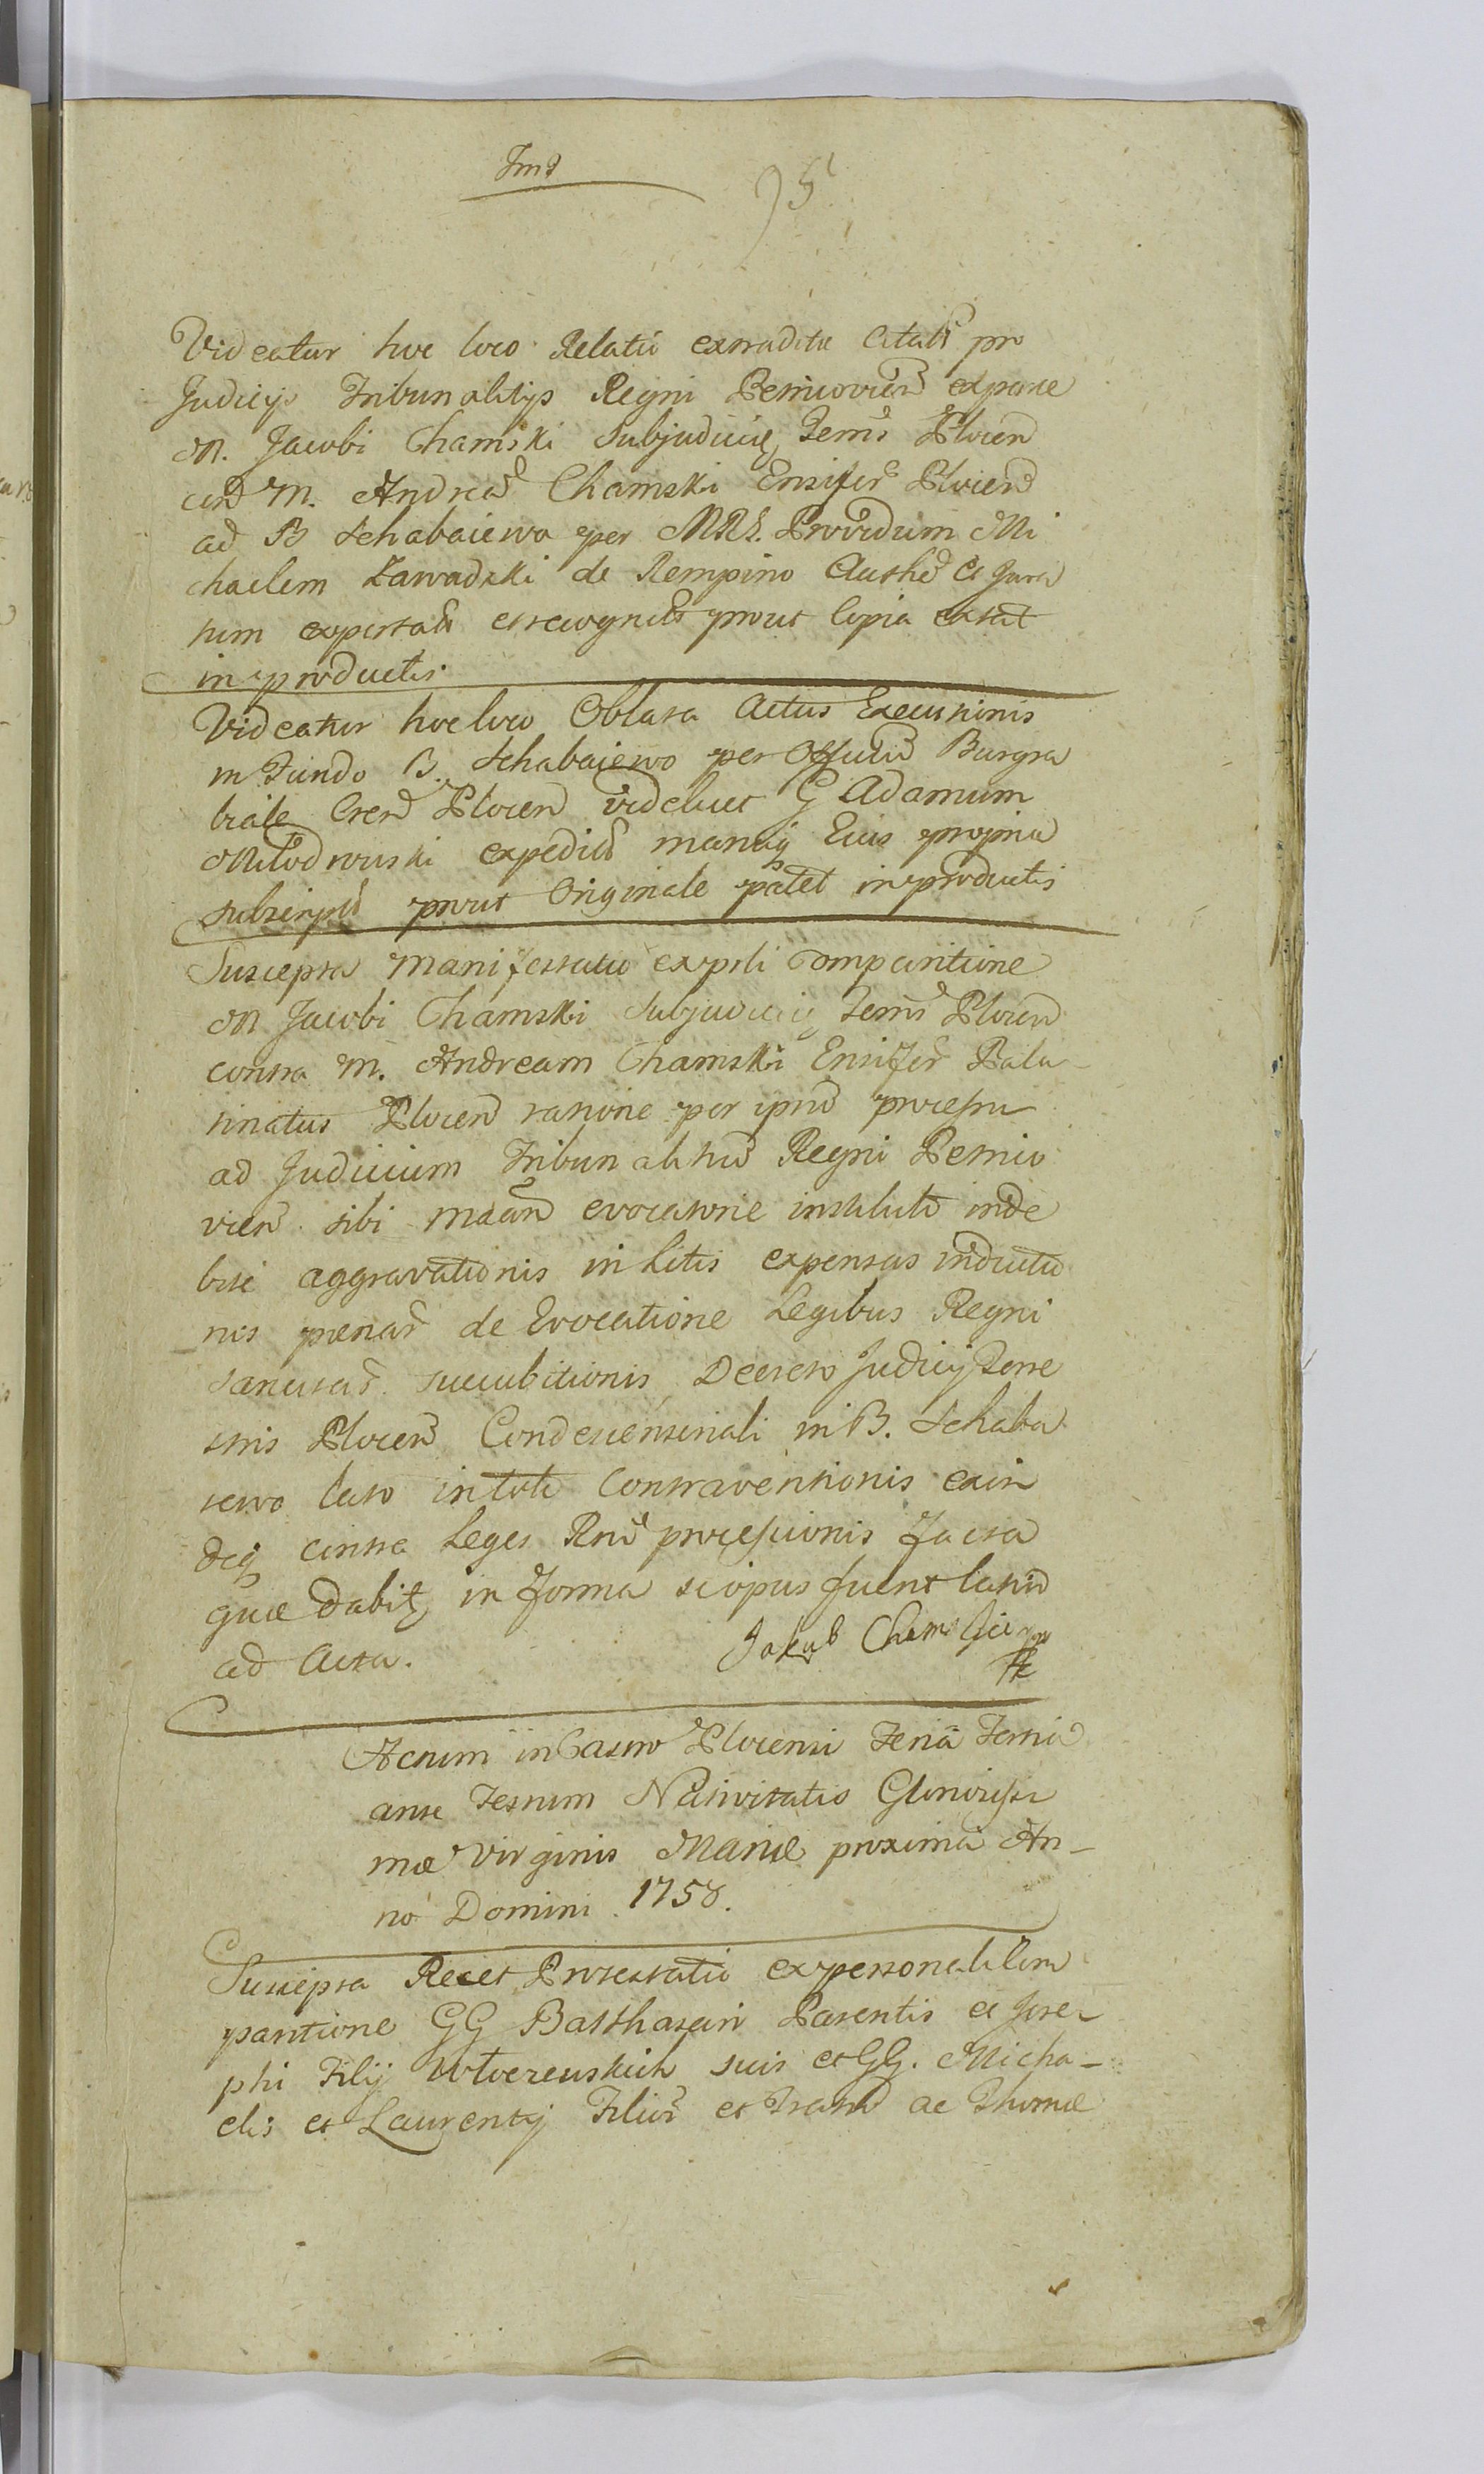 95
Videatur hoc loco Relatio extraditae Citatõ pro
Judicijs Tribunalitijs Regni Petricovieñ exparte
M. Jacobi Chamski Subjudicis Terrris Plocen
M. Andreã Chamski Ensiferũ Plocen
ad B Schabaiewo per Providum Mi
chaelem Zawadzki de Rempino et Jura
tum exportatõ et recognitõ prout Copia extat
in productis.
Videatur hoc loco Oblata Actus Executionis
in Fundo B. Schabaiewo per Officiũ Burgra
biale Cren Plocen videlicet G Adamum
Młodzowski expeditũ manuq Eius propria
subscriptũ prout Originale patet in productis
Suscepta manifestatio exprli Comparitione
M Jacobi Chamski Subjudicis Terrris Plocen
contra M. Andream Chamski Ensiferũ Pala-
tinatus Plocen ratione per ipsũ processu
ad Judicium Tribunalitiũ Regni Petrico
vien sibi Mdan evocatorie instituti inde
bite aggravationis in Litis expensas inductio
nis paenarũ de Evocatione Legibus Regni
sancitarũ succubitionis Decreto Judicij Terre
stris Plocen Condescensoriali in B. Schaba
iewo lato in toto Contraventionis exin
deq contra Leges Rni processionis facta
quae dabitr in forma si opus fuerit latiũ
ad Acta.
Jakub Chamski
Actum in Castro Plocensi Feria Tertia
ante Festum Nativitatis Gloriosissi
mae Virginis Mariae proxima An-
no Domini 1758.
Suscepta Recet Protestatio expersonali Com
paritione GG Balthasari Parentis et Jose-
phi Filij suis et GG. Micha-
elis et Laurentij Filiorũ et Fratrũ ac Thomae